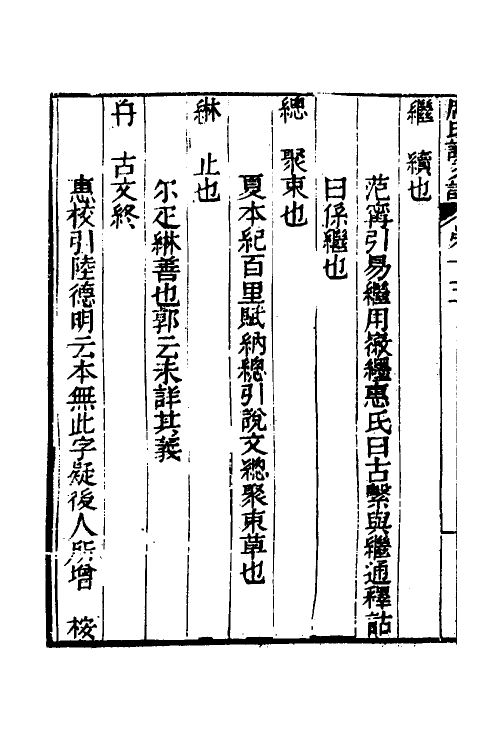 繼　續也
范甯引易繼用徽纆惠氏曰古繫與繼通釋詁
曰係繼也
總　聚束也
夏本紀百里賦納總引說文總聚束草也
綝　止也
尒疋綝善也郭云未詳其義
冄　古文終
惠校引陸德明云本無此字疑後人所增　桉